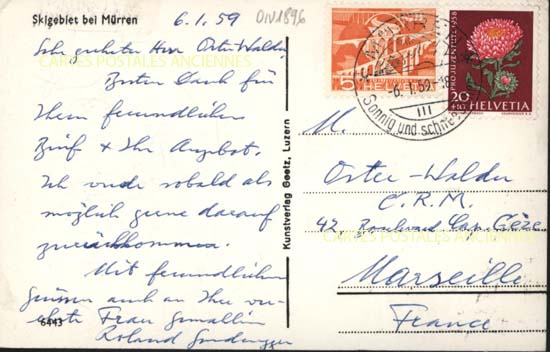 Skigebiet bei Mürren
6.1.59
OIV1896
Sehr geehrter Herr Oster-Walder,
CARTES POSTALES ANCIENNES
Besten Dank für
Ihren freundlichen
Brief & Ihr Angebot.
Ich werde sobald als
möglich gerne darauf
zurückkommen.
Mit freundlichen
Grüssen auch an Ihre ver-
ehrte Frau Gemahlin
Roland
6443
Kunstverlag Goetz, Luzern
5
HELVETIA
PRO JUVENTUTE 1958
20
+10
HELVETIA
-6.1.59-18
III
Sonnig und
M.
Oster-Walder
C.R.M.
42, Boulevard Cap. Gèze
CARTES POSTALES ANCIENNES
Marseille
France